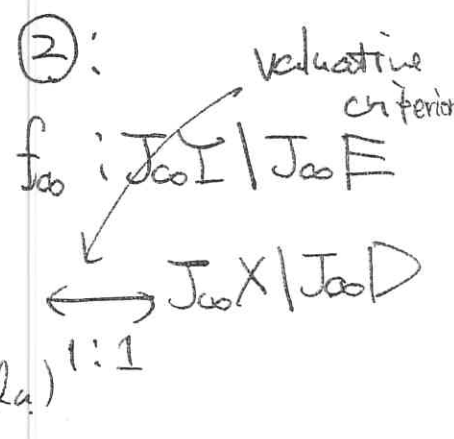 ②:
valuative
criterion
f_∞ : J_∞Y \ J_∞E
⟷ J_∞X \ J_∞D
1:1